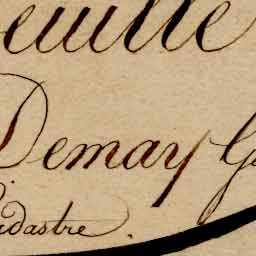 euille
Demay G
dastre.